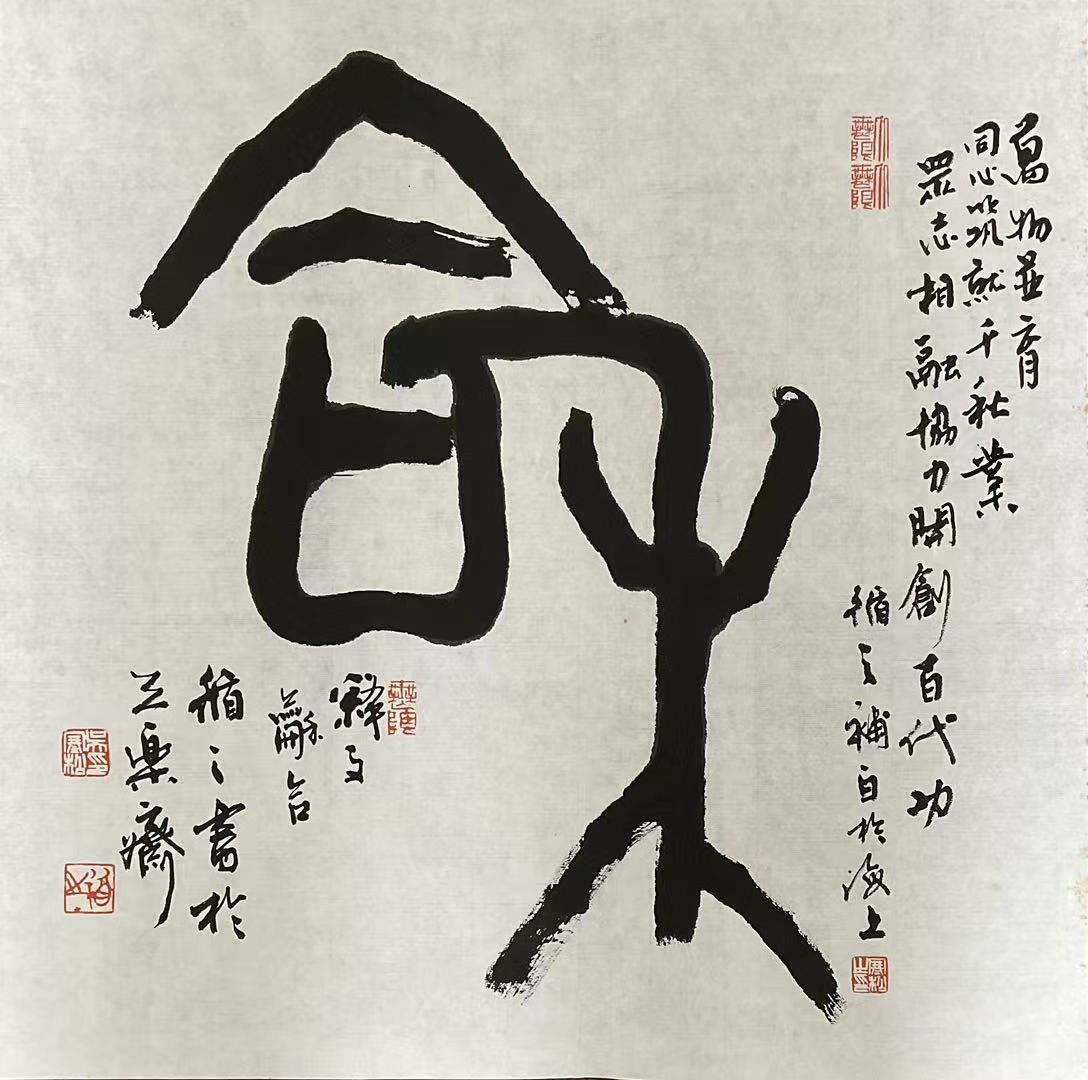 萬物並育
同心筑就千秋業
眾志相融協力開創百代功
循之補白於海上
釋文
龢合
循之書於
樂齋